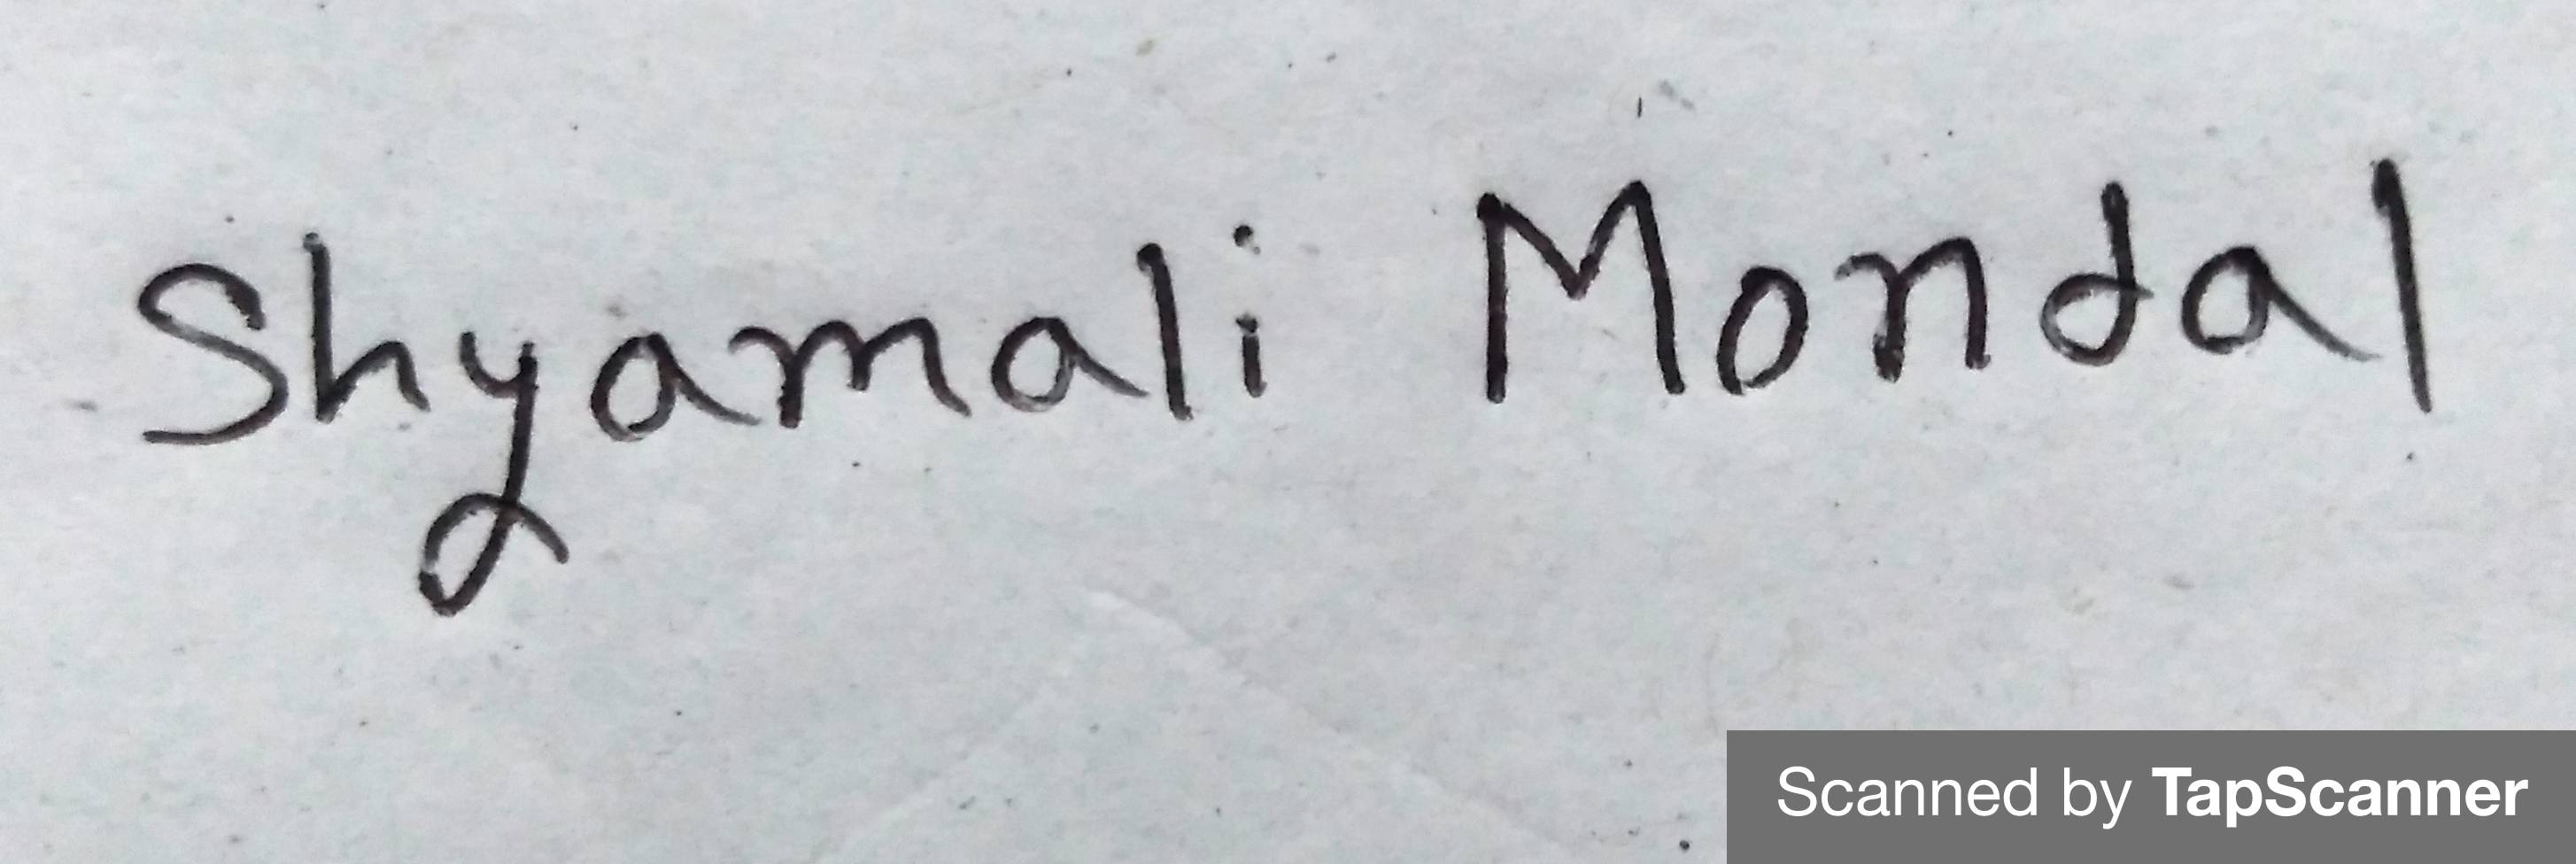 Shyamali Mondal
Scanned by TapScanner